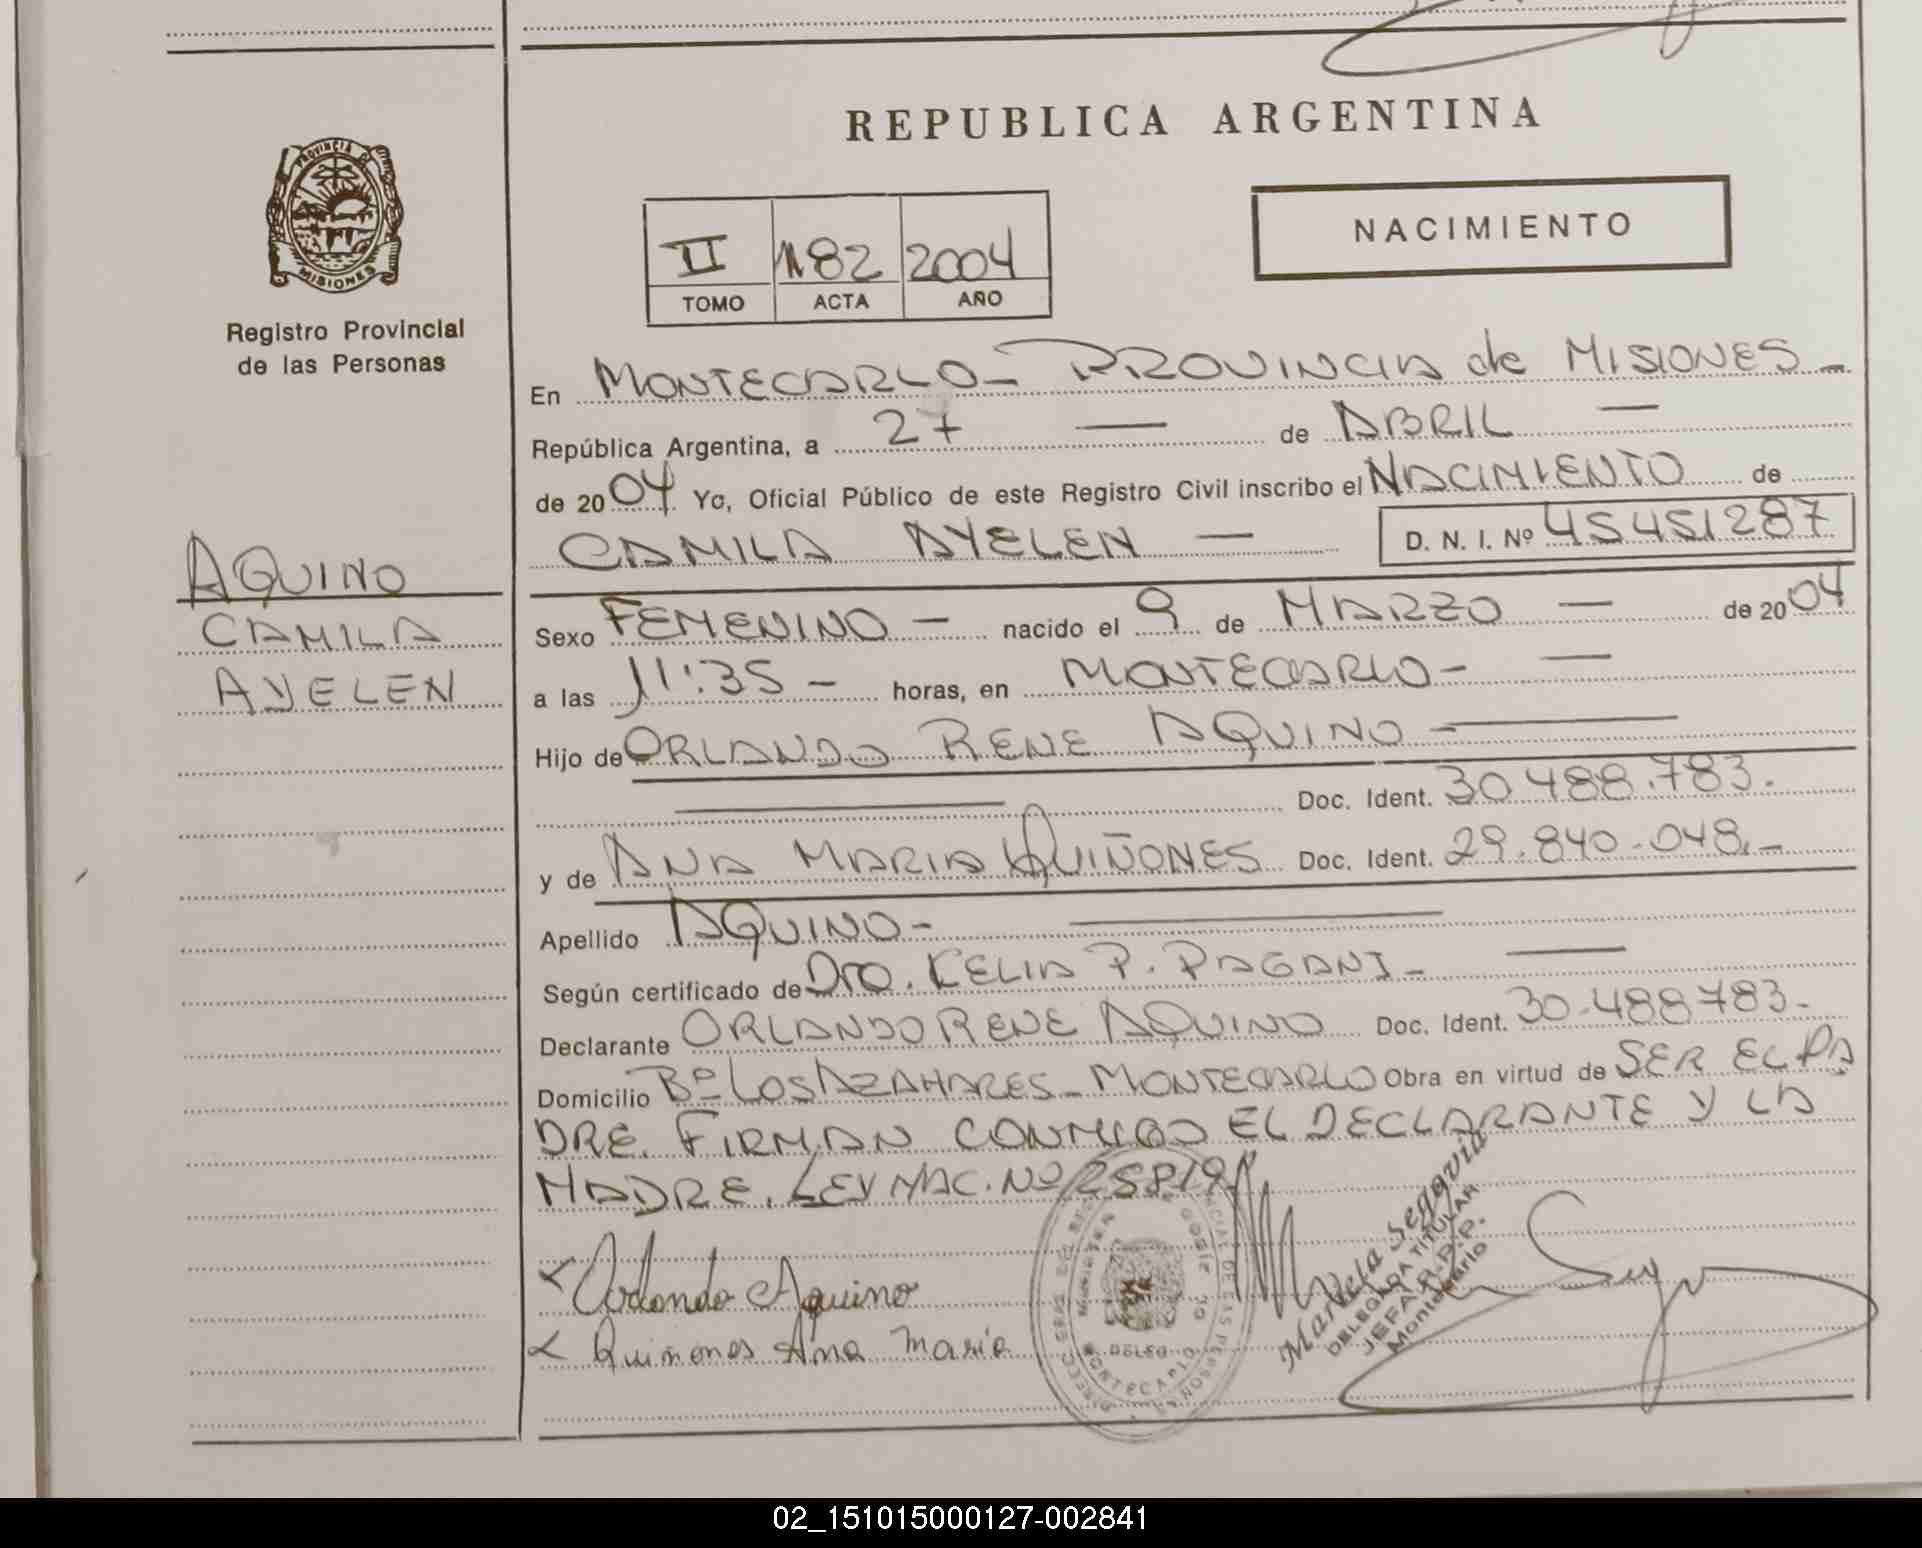 REPUBLICA ARGENTINA
PROVINCIA DE
MISIONES
Registro Provincial
de las Personas
NACIMIENTO
II 182 2004
TOMO ACTA AÑO
En MONTECARLO - PROVINCIA de MISIONES -
República Argentina, a 27 — de ABRIL —
de 2004 Yo, Oficial Público de este Registro Civil inscribo el NACIMIENTO de
CAMILA AYELEN — D. N. I. Nº 45451287
AQUINO
CAMILA
AYELEN
Sexo FEMENINO - nacido el 9 de MARZO — de 2004
a las 11:35 - horas, en MONTECARLO - —
Hijo de ORLANDO RENE AQUINO -
Doc. Ident. 30.488.783.
y de ANA MARIA QUIÑONES Doc. Ident. 29.840.048.-
Apellido AQUINO -
Según certificado de Dra. CELIA P. PAGANI -
Declarante ORLANDO RENE AQUINO Doc. Ident. 30.488783-
Domicilio Bº LOS AZAHARES - MONTECARLO Obra en virtud de SER EL PA
DRE. FIRMAN CONMIGO EL DECLARANTE Y LA
MADRE. LEY NAC. Nº 25819
Orlando Aquino
Quiñones Ana Maria
DELEG.
MONTECARLO
Marvela Segovia
DELEGADA TITULAR
JEFA R.P.P.
Montecarlo
02_151015000127-002841